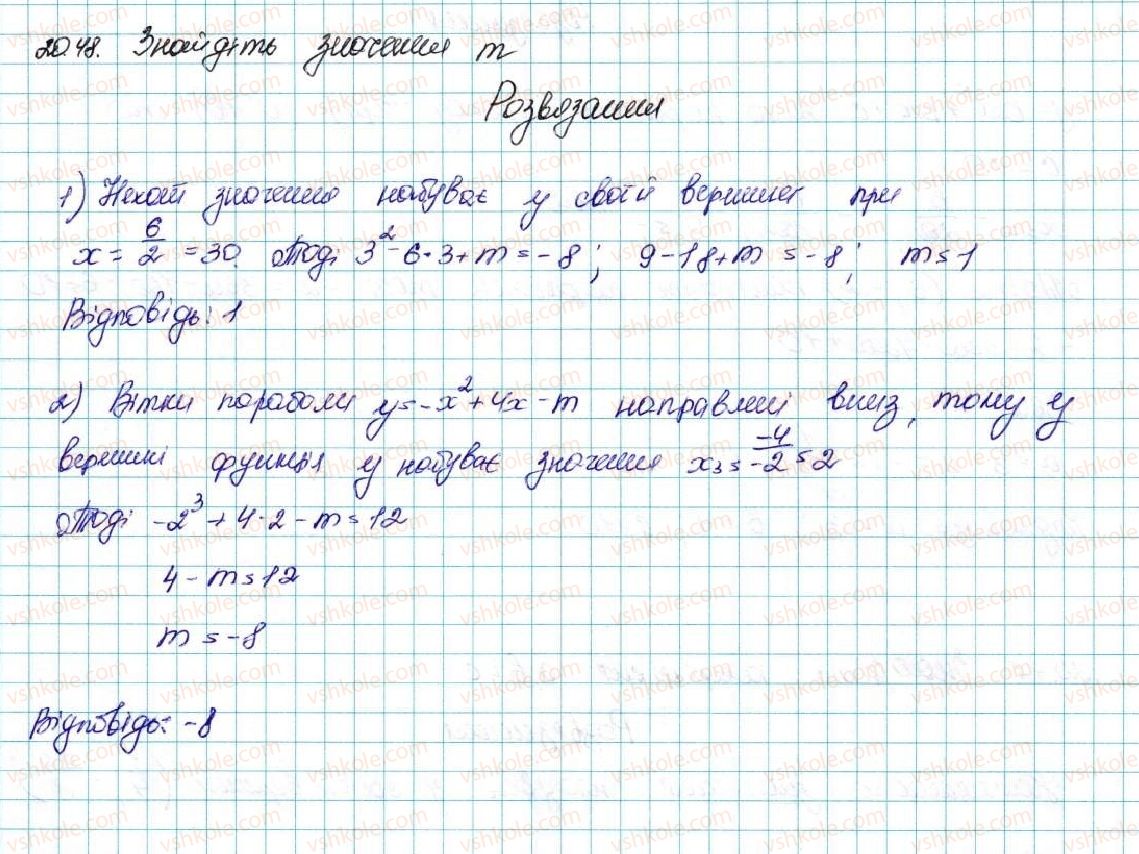 2048. Знайдіть значення m
Розвязання
1) Нехай значення набуває у своїй вершині при
x = 6/2 = 30. Тоді 3² - 6·3 + m = -8; 9 - 18 + m = -8; m = 1
Відповідь: 1
2) Вітки параболи y = -x² + 4x - m направлені вниз, тому у
вершині функція у набуває значення x₃ = -4/-2 = 2
Тоді -2³ + 4·2 - m = 12
4 - m = 12
m = -8
Відповідь: -8